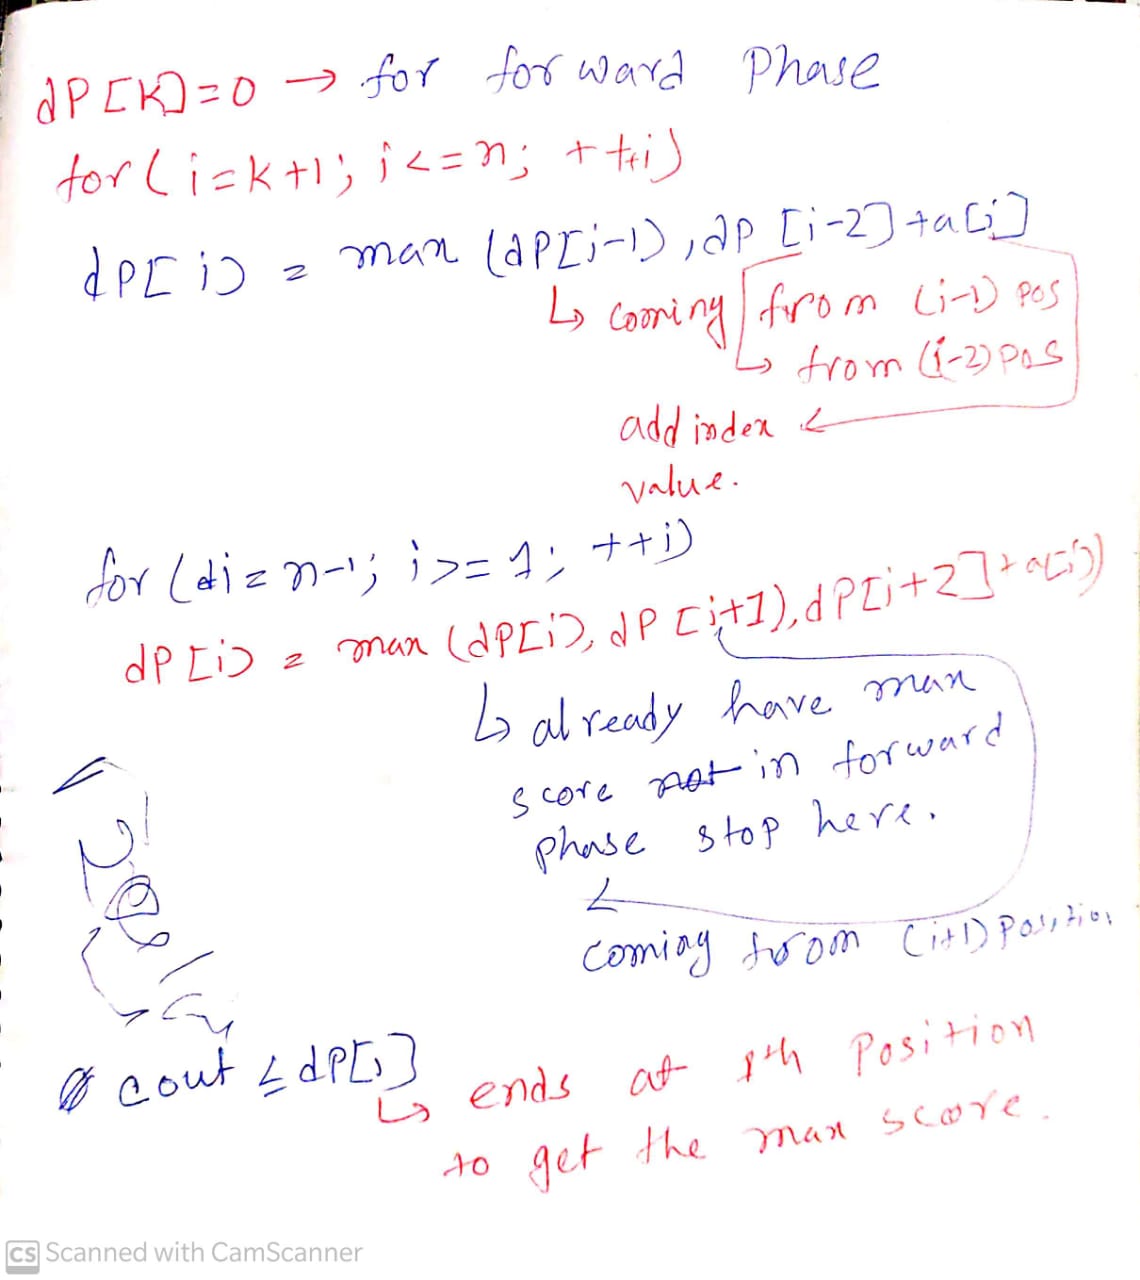 dP[K]=0 → for forward Phase
for(i=k+1; i<=n; ++i)
dP[i] = max (dP[i-1], dP[i-2]+a[i]
↳ coming from (i-1) pos
↳ from (i-2) pos
add index ←
value.
for (i=n-1; i>=1; ++i)
dP[i] = max (dP[i], dP[i+1), dP[i+2]+a[i])
↳ already have max
score not in forward
phase stop here.
coming from (i+1) Position
cout ≤ dP[1]
↳ ends at 1th Position
to get the max score.
CS Scanned with CamScanner